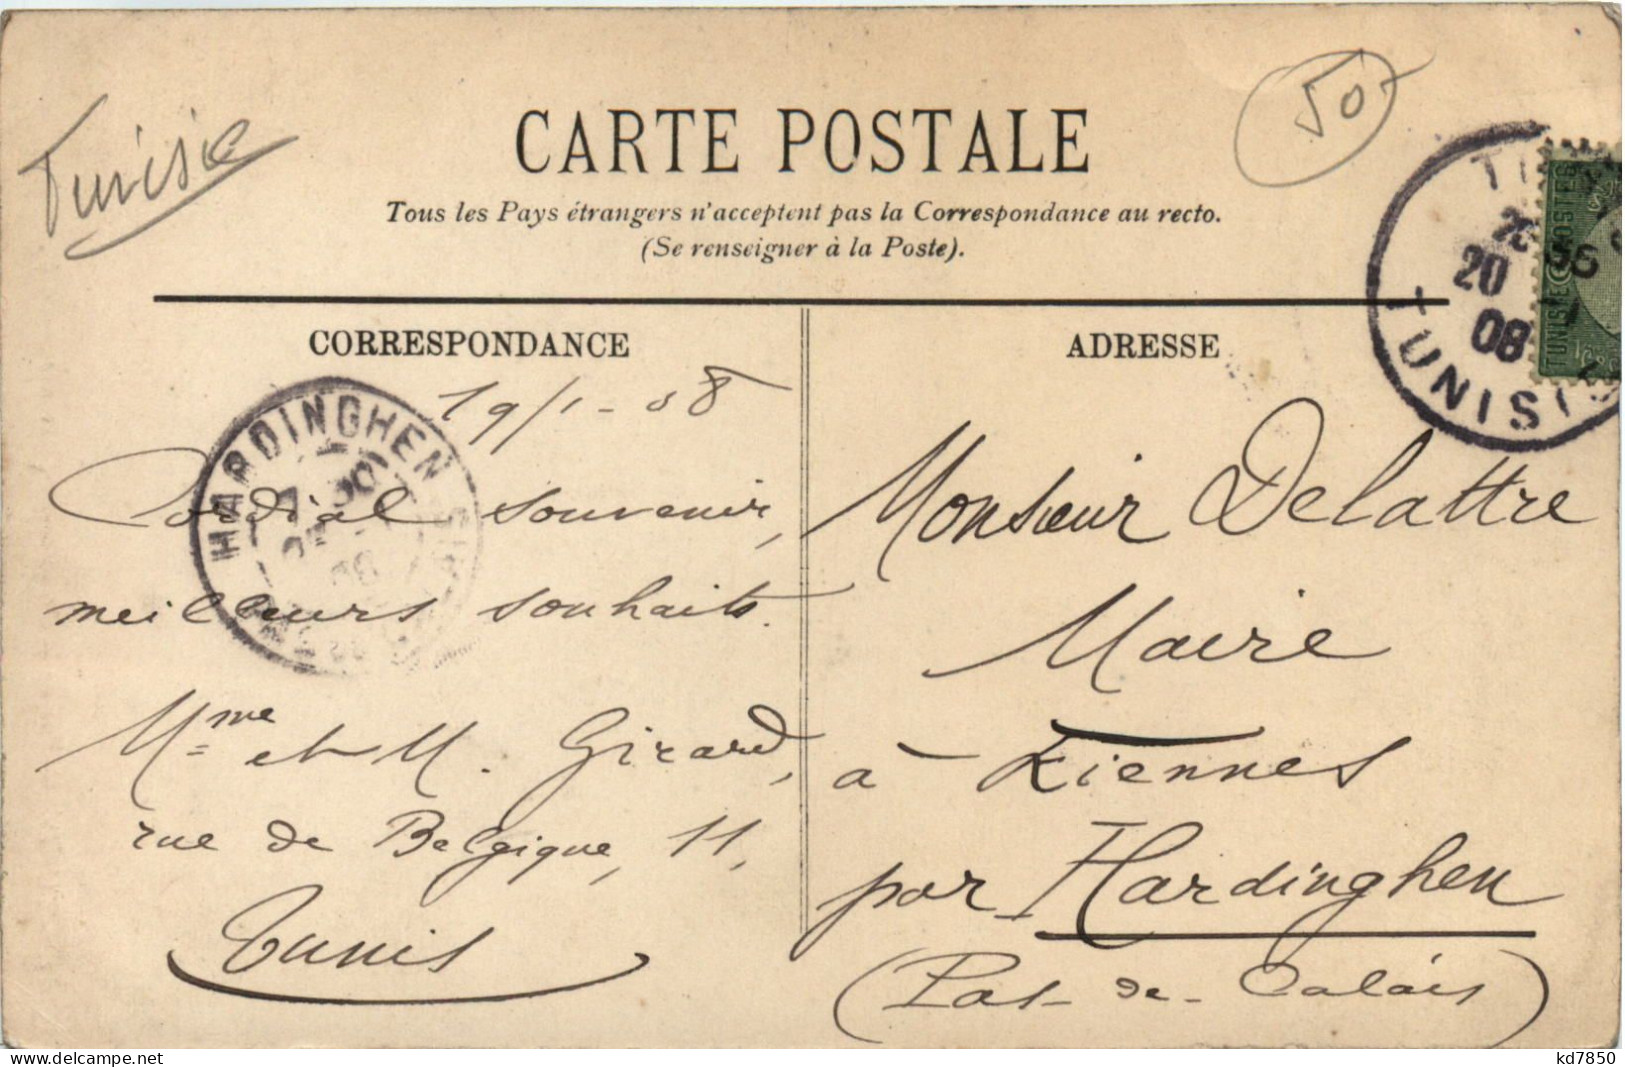 Tunisie
50
CARTE POSTALE
Tous les Pays étrangers n'acceptent pas la Correspondance au recto.
(Se renseigner à la Poste).
CORRESPONDANCE
19/1-08
Cordial souvenir,
meilleurs souhaits.
Mme et M. Girard,
rue de Belgique, 11,
Tunis
HARDINGHEN
ADRESSE
Monsieur Delattre
Maire
à Fiennes
par Hardinghen
(Pas-de-Calais)
20
08
TUNISIE
TUNISIE POSTES
kd7850